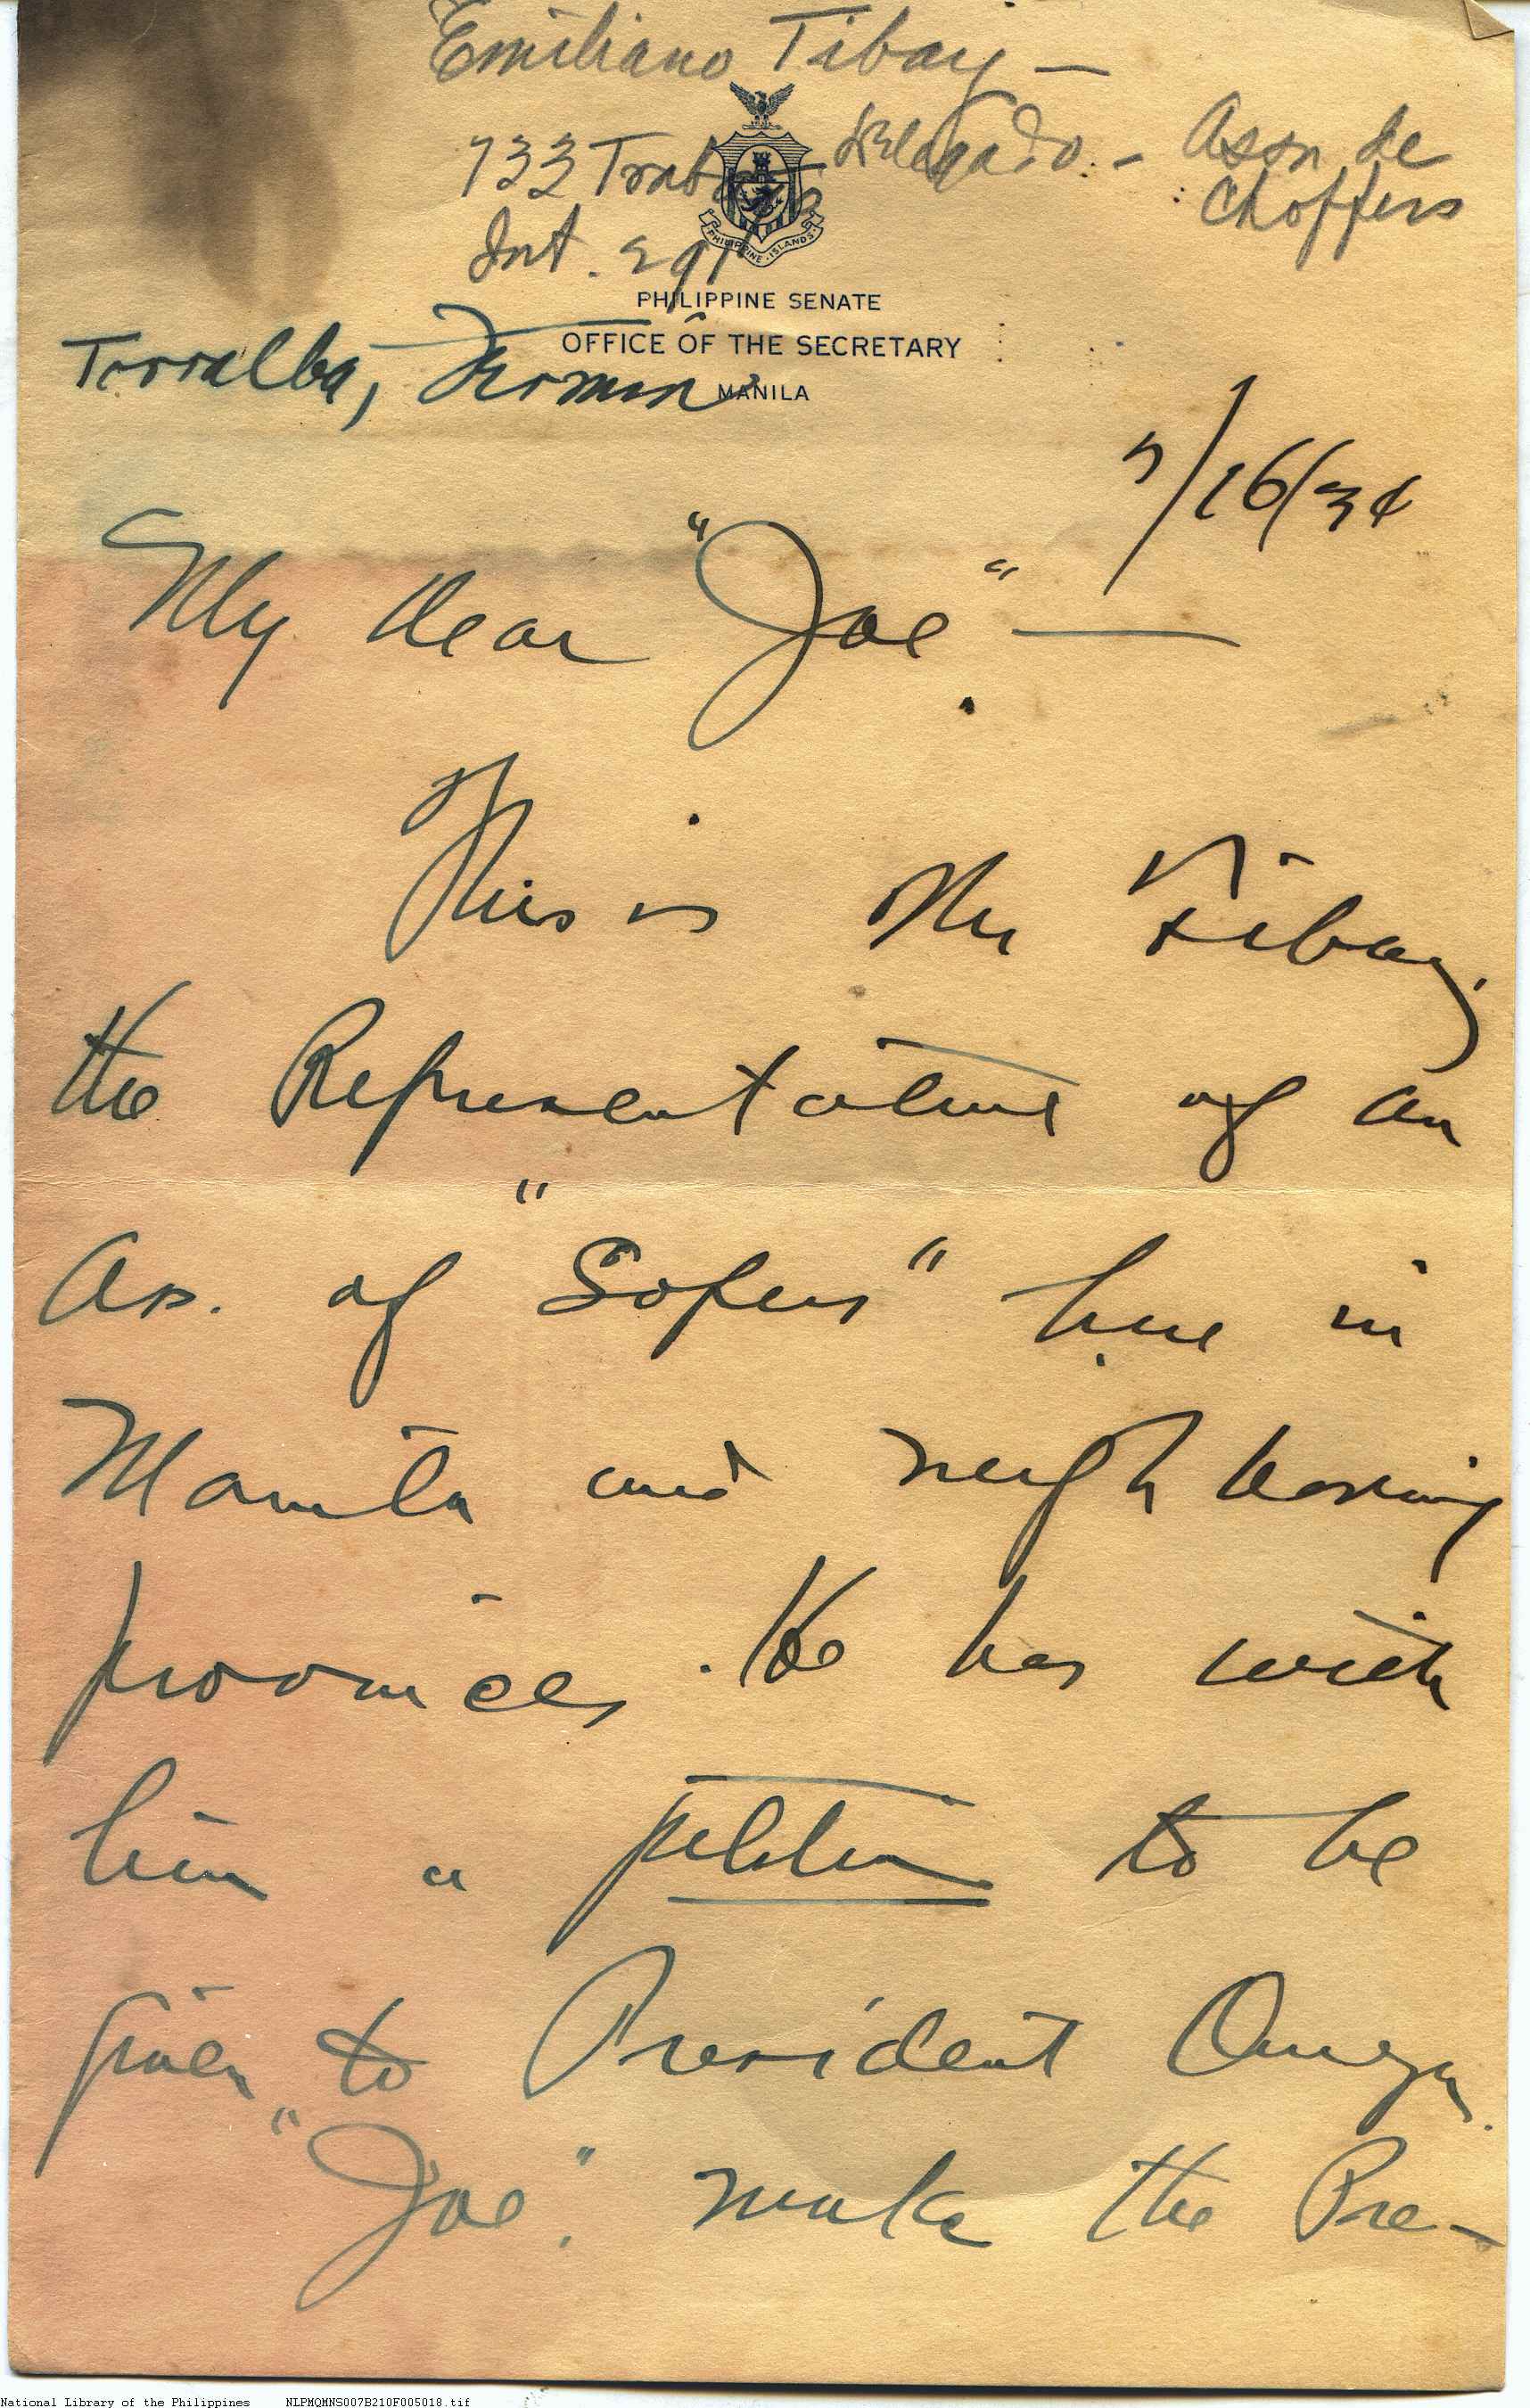 Emiliano Tibay —
733 Trabajo Delegado. - Assn de
Choffers
Int. 291
PHILIPPINE ISLANDS
PHILIPPINE SENATE
OFFICE OF THE SECRETARY
MANILA
Torralba, Fermin
7/16/34
My dear "Joe" —
This is Mr Tibay,
the Representative of an
Ass. of "Sofers" here in
Manila and neighboring
provinces. He has with
him a petition to be
given to President Quezon.
"Joe". make the Pre-
National Library of the Philippines NLPMQMNS007B210F005018.tif